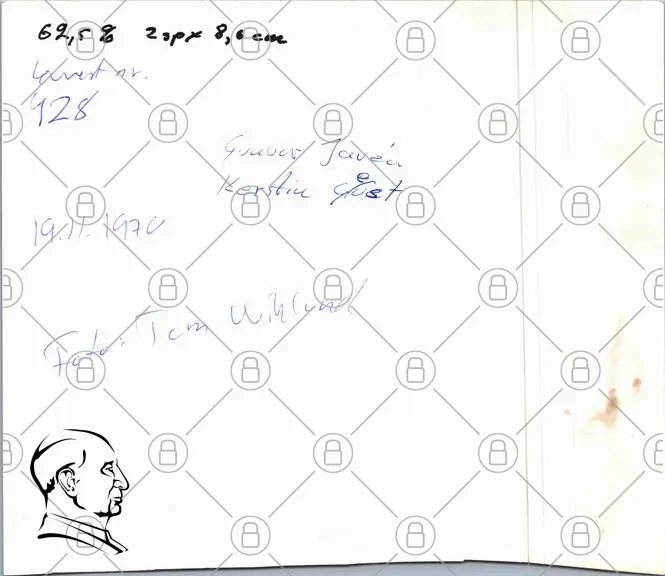 62,5% 2sp x 8,6 cm
Kuvert nr.
928
Gunnar Javén
Kerstin
19.11.1970
Foto: Tom Wiklund